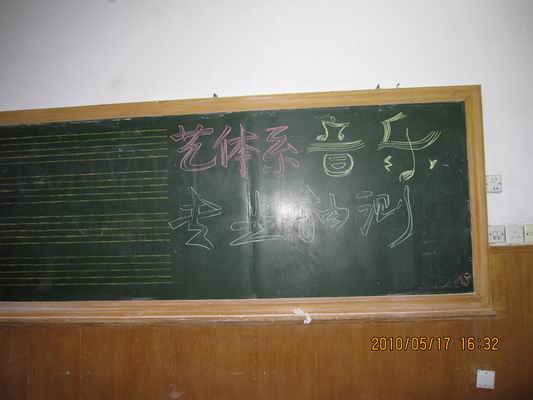 艺体系音乐
专业抽测
2010/05/17 16:32